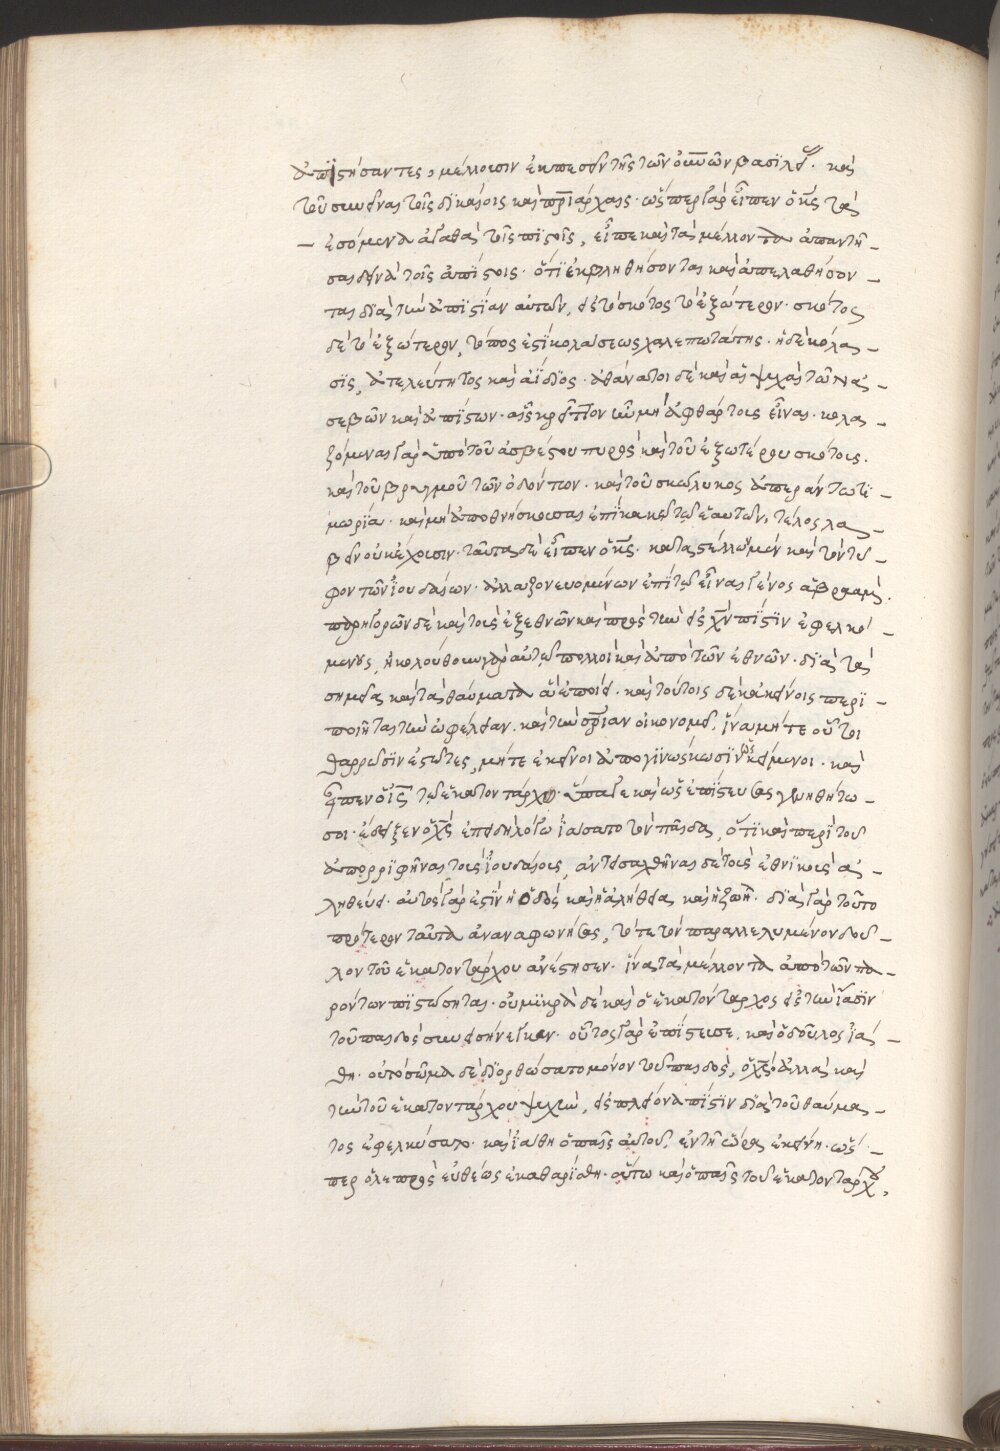 ἀπιστήσαντες, μέλλουσιν ἐκπεσεῖν τῆς τῶν οὐνῶν βασιλεί. καὶ
τοῦ συνεῖναι τοῖς δικαίοις καὶ πριάρχαις. ὥσπερ γὰρ εἶπεν ὁ κς τὰ
ἐσόμενα ἀγαθὰ τοῖς πιστοῖς, εἶπε καὶ τὰ μέλλοντα ἀπαντῆ-
σαι δεινὰ τοῖς ἀπίστοις. ὅτι ἐκβληθήσονται καὶ ἀπελαθήσον-
ται διὰ τὴν ἀπιστίαν αὐτῶν, εἰς τὸ σκότος τὸ ἐξώτερον. σκότος
δὲ τὸ ἐξώτερον, τόπος ἐστὶ κολάσεως χαλεπωτάτης. ἡ δὲ κόλα-
σις, ἀτελεύτητος καὶ ἀΐδιος. ἀθάνατοι δὲ καὶ αἱ ψυχαὶ τῶν ἀ-
σεβῶν καὶ ἀπίστων. εἶναι. κολα-
ζόμεναι γὰρ ὑπὸ τοῦ ἀσβέστου πυρὸς καὶ τοῦ ἐξωτέρου σκότους.
καὶ τοῦ βρυγμοῦ τῶν ὀδόντων. καὶ τοῦ σκώληκος ἀπεράντω τι-
μωρία. καὶ μὴ ἀποθνήσκουσαι ἐπὶ κακῷ τῷ ἑαυτῶν, τέλος λα-
βεῖν οὐκ ἔχουσιν. ταῦτα δὲ εἶπεν ὁ κς. καταστέλλων μὲν καὶ τὸν τῦ-
φον τῶν ἰουδαίων. ἀλαζονευομένων ἐπὶ τῷ εἶναι γένος ἀβραάμ.
παρηγορῶν δὲ καὶ τοὺς ἐξ ἐθνῶν καὶ πρὸς τὴν εἰς χν πίστιν ἐφελκό-
μενος, ἠκολούθουν γὰρ αὐτῷ πολλοὶ καὶ ἀπὸ τῶν ἐθνῶν. διὰ τὰ
σημεῖα καὶ τὰ θαύματα ἃ ἐποίει. καὶ τούτοις δὲ κἀκείνοις περι-
ποιῆται τὴν ὠφέλειαν. καὶ τὴν σριαν οἰκονομεῖ, ἵνα μήτε οὗτοι
θαρρῶσιν ἑστῶτες, μήτε ἐκεῖνοι ἀπογινώσκωσιν ὡς κείμενοι. καὶ
εἶπεν ὁ ις τῷ ἑκατοντάρχῳ. ὕπαγε καὶ ὡς ἐπίστευσας γενηθήτω
σοι. ἔδειξεν ὁ χς ἐπειδὴ λόγω ἰάσατο τὸν παῖδα, ὅτι καὶ περὶ τοῦ
ἀπορριφῆναι τοὺς ἰουδαίους, ἀντεισαχθῆναι δὲ τοὺς ἐθνικοὺς ἀ-
ληθεύει. αὐτὸς γάρ ἐστιν ἡ ὁδὸς καὶ ἡ ἀλήθεια καὶ ἡ ζωή. διὰ γὰρ τοῦτο
πρότερον ταῦτα ἀναφωνήσας, τότε τὸν παραλελυμένον δοῦ-
λον τοῦ ἑκατοντάρχου ἀνέστησεν. ἵνα τὰ μέλλοντα ἀπὸ τῶν πα-
ρόντων πιστώσηται. οὐ μικρὰ δὲ καὶ ὁ ἑκατόνταρχος εἰς τὴν ἴασιν
τοῦ παιδὸς συνεισήνεγκεν. οὗτος γὰρ ἐπίστευσε, καὶ ὁ δοῦλος ἰά-
θη. οὐ τὸ σῶμα δὲ διορθώσατο μόνον τοῦ παιδὸς, ὁ χς ἀλλὰ καὶ
τὴν τοῦ ἑκατοντάρχου ψυχὴν, εἰς πλείονα πίστιν διὰ τοῦ θαύμα-
τος ἐφελκύσατο. καὶ ἰάθη ὁ παῖς αὐτοῦ, ἐν τῇ ὥρα ἐκείνη. ὥσ-
περ ὁ λεπρὸς εὐθέως ἐκαθαρίσθη. οὕτω καὶ ὁ παῖς τοῦ ἑκατοντάρχου,